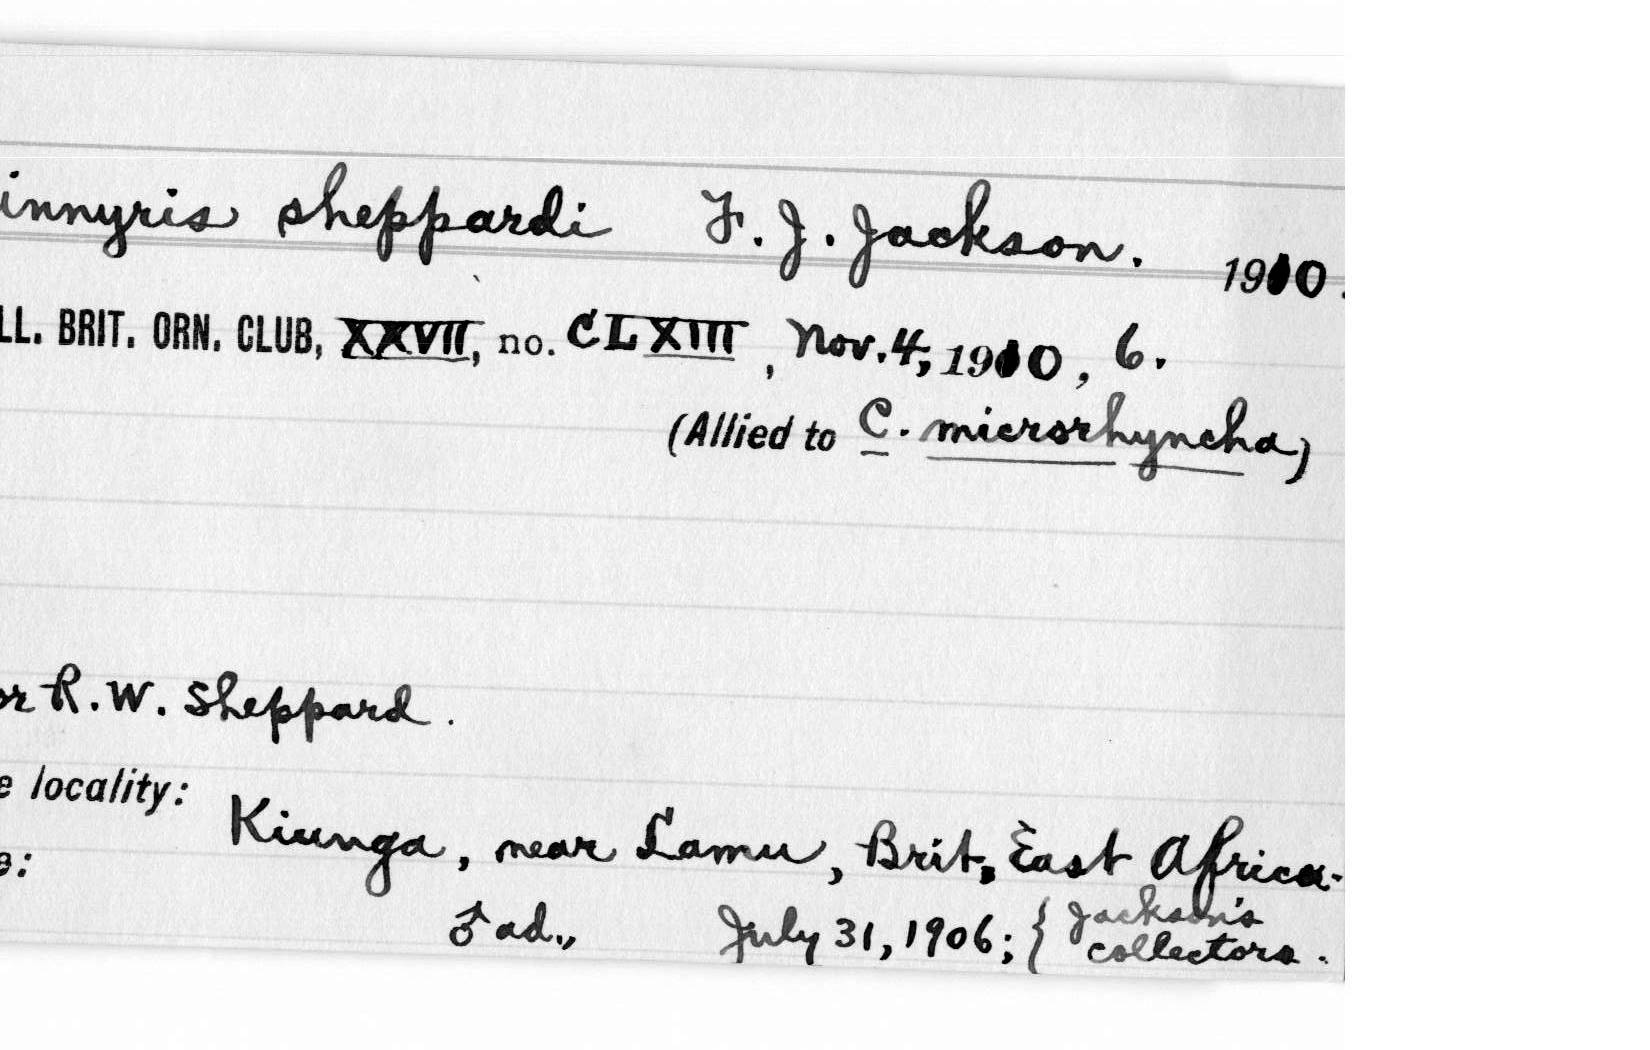 innyris sheppardi F. J. Jackson. 1910.
LL. BRIT. ORN. CLUB, XXVII, no. CLXIII, Nov. 4, 1910, 6.
(Allied to C. microrhyncha)
or R. W. Sheppard.
e locality: Kiunga, near Lamu, Brit. East Africa.
e:
♂ ad., July 31, 1906; { Jackson's
collectors.